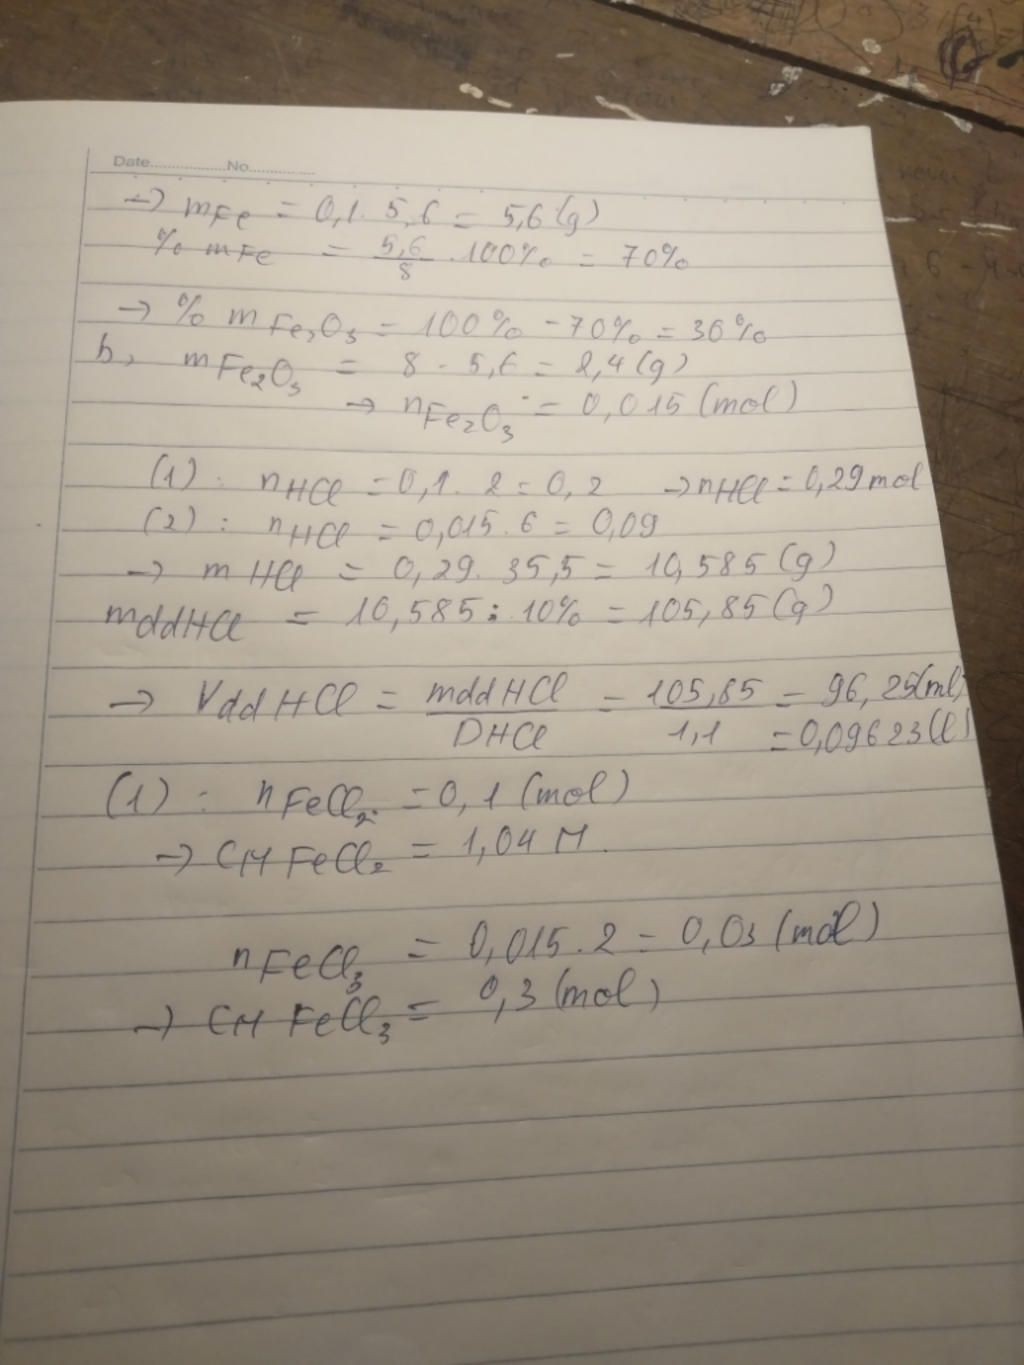 Date..............No..............
→ mFe = 0,1. 5,6 = 5,6 (g)
% mFe = 5,6/8 .100% = 70%
→ % mFe2O3 = 100% - 70% = 30%
b, mFe2O3 = 8 - 5,6 = 2,4 (g)
→ nFe2O3 = 0,015 (mol)
(1) : nHCl = 0,1. 2 = 0,2 → nHCl = 0,29 mol
(2) : nHCl = 0,015. 6 = 0,09
→ mHCl = 0,29. 35,5 = 10,585 (g)
mddHCl = 10,585 : 10% = 105,85 (g)
→ VddHCl = mddHCl/DHCl = 105,85/1,1 = 96,25 (ml)
= 0,09623 (l)
(1) : nFeCl2 = 0,1 (mol)
→ CM FeCl2 = 1,04 M.
nFeCl3 = 0,015. 2 = 0,03 (mol)
→ CM FeCl3 = 0,3 (mol)